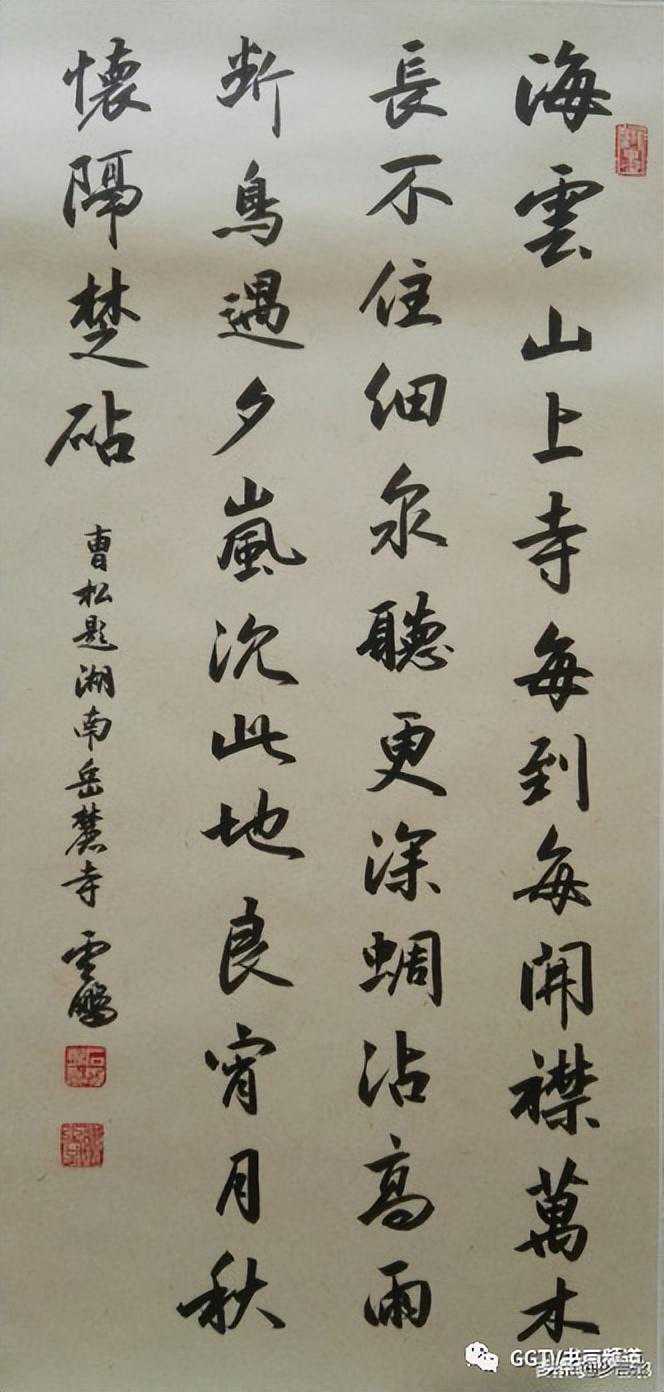 海雲山上寺每到每開襟萬木
長不住細泉聽更深蜩沾高雨
断鳥遇夕嵐沉此地良宵月秋
懷隔楚砧
曹松題湖南岳麓寺 雲鵬
GGTV书画频道